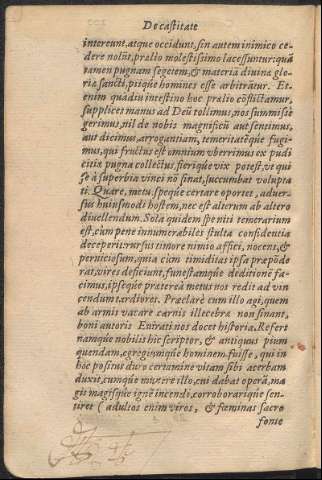 De castitate
intereunt, atque occidunt, sin autem inimico ce-
dere nolũt, prælio molestissimo lacessuntur: quã
tamen pugnam segetem, & materia diuina glo-
riæ sancti, pijque homines esse arbitrãtur. Et-
enim quãdiu intestino hoc prælio cõflictamur,
supplices manus ad Deũ tollimus, nos summissè
gerimus, nil de nobis magnificũ aut sentimus,
aut dicimus, arrogantiam, temeritatẽque fugi-
mus, qui fructus est omnium vberrimus ex pudi
citiæ pugna collectus, fierique vix potest, vt qui
se à superbia vinci nõ sinat, succumbat volupta
ti. Quare, metu, spẽque certare oportet, aduer-
sus huiusmodi hostem, nec est alterum ab altero
diuellendum. Sola quidem spe niti temerarium
est, cum pene innumerabiles stulta confidentia
deceperit: rursus timore nimio affici, nocens, &
perniciosum, quia cùm timiditas ipsa præpõde
rat, vires deficiunt, funestamque deditionẽ fa-
cimus, ipsẽque prætereà metus nos redit ad vin
cendum tardiores. Præclarè cum illo agi, quem
ab armis vacare carnis illecebræ non sinant,
boni autoris Euirati nos docet historia. Refert
namque nobilis hic scriptor, & antiquus pium
quendam, egregiumque hominem fuisse, qui in
hoc positus duro certamine vitam sibi acerbam
duxit, cumque mẽrere illo, cui dabat operã, ma
gis magisque ignẽ incendi, corroborarique sen-
tiret (adultos enim viros, & fæminas sacro
fonte